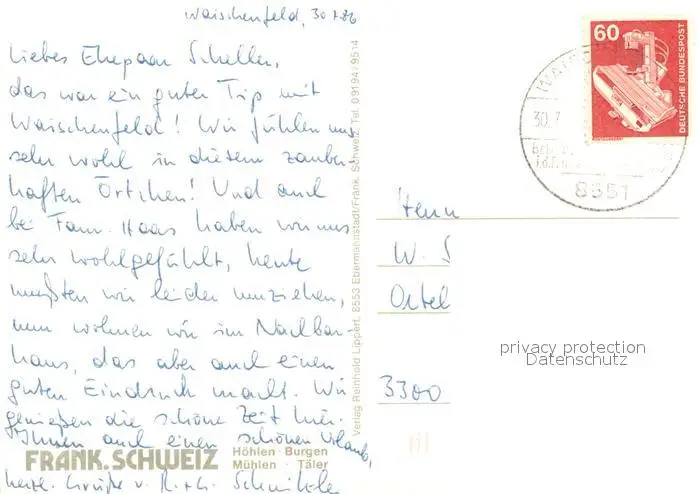 Waischenfeld, 30.7.86
Liebes Ehepaar Scheller,
das war ein guter Tip mit
Waischenfeld! Wir fühlen uns
sehr wohl in diesem zauber-
haften Örtchen! Und auch
bei Fam. Haas haben wir uns
sehr wohlgefühlt, heute
mußten wir leider umziehen,
nun wohnen wir im Nachbar-
haus, das aber auch einen
guten Eindruck macht. Wir
genießen die schöne Zeit hier.
Ihnen auch einen schönen Urlaub,
herzl. Grüße v. R. + G.
FRÄNK. SCHWEIZ
Höhlen · Burgen
Mühlen · Täler
Verlag Reinhold Lippert, 8553 Ebermannstadt/Fränk. Schweiz, Tel. 09194/9514
60
DEUTSCHE BUNDESPOST
30.7.
8551
Herrn
W. S
Ortel
3300
privacy protection
Datenschutz